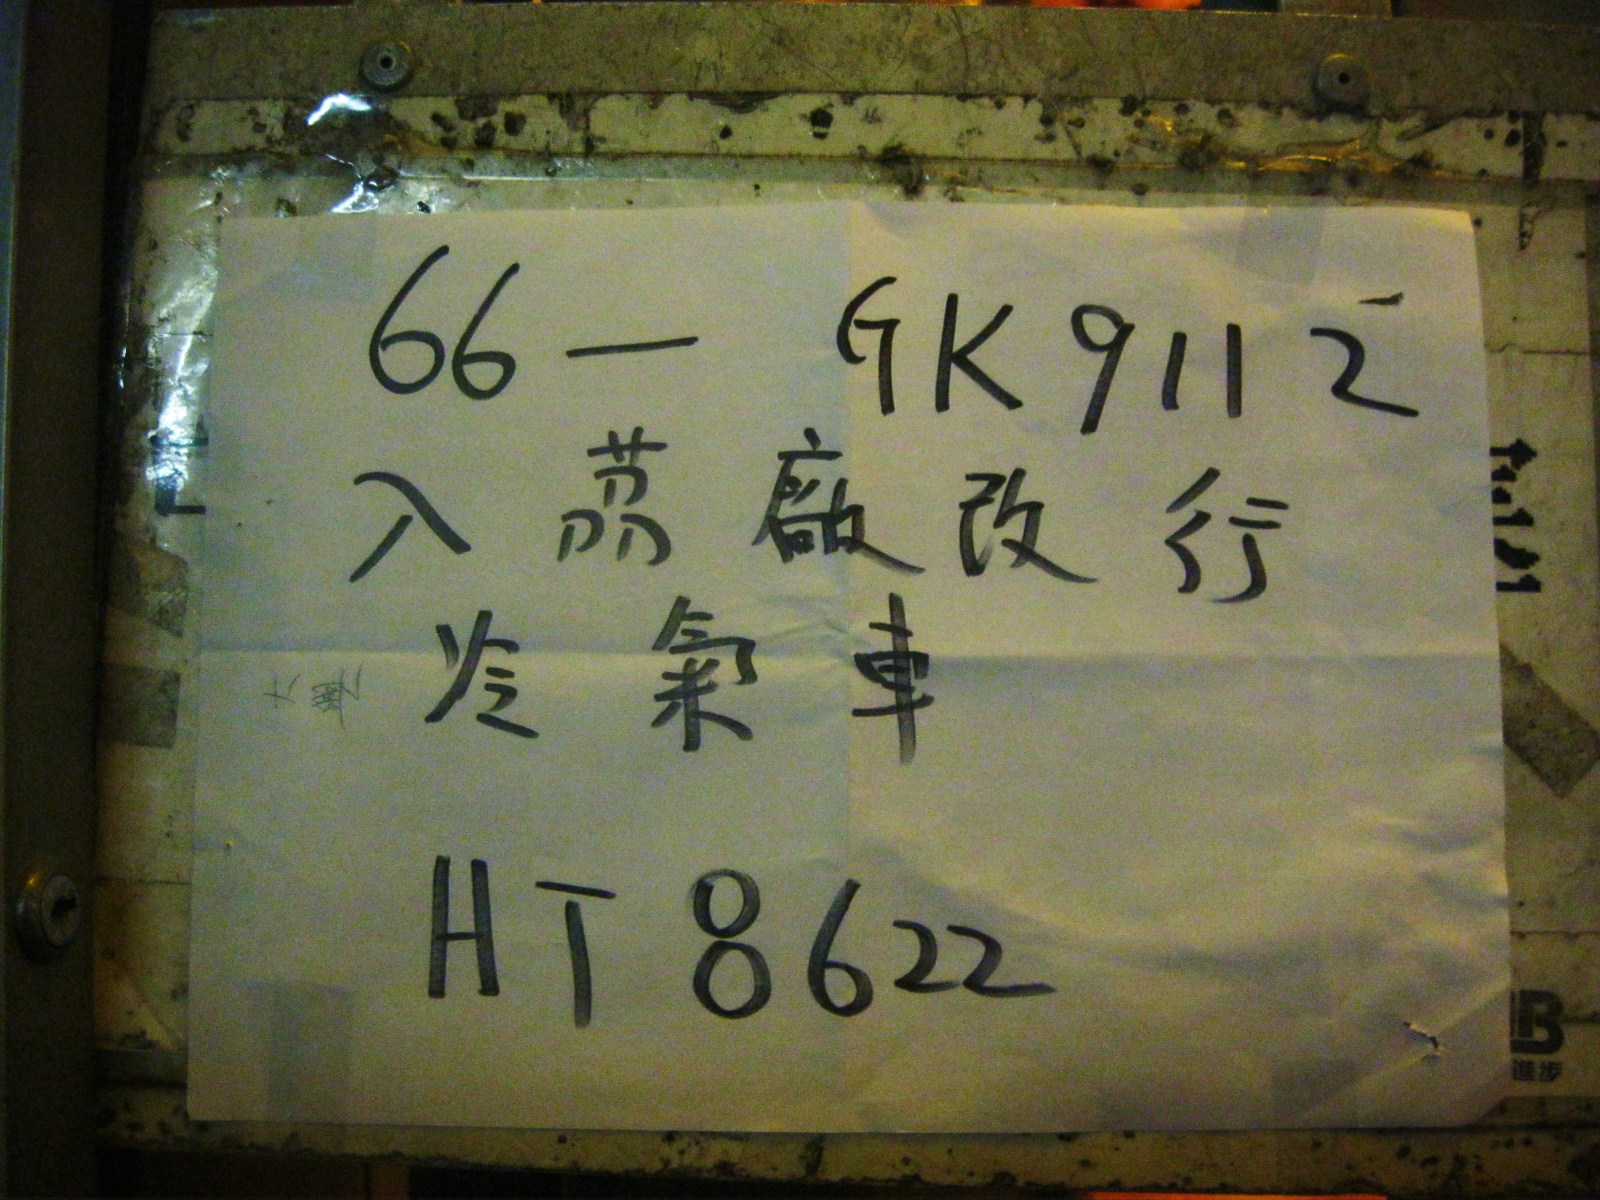 66— GK9112
入茘廠改行
冷氣車
大
HT8622
B
進步